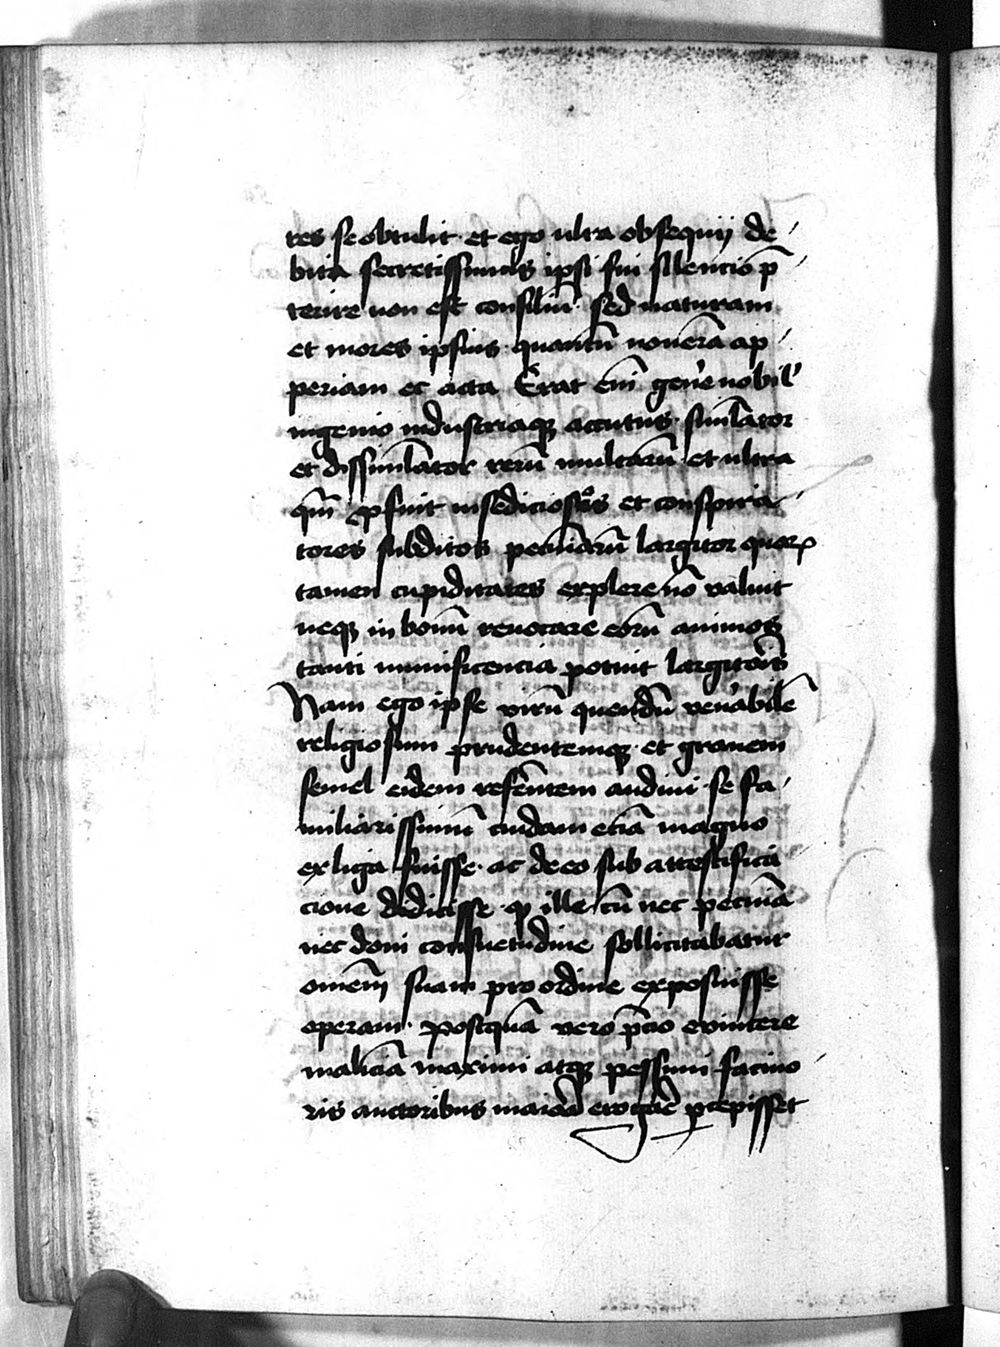 res se obtulit · et ego ultra obsequij de-
bita secretissimus ipsi fui silencio p̄
terire non est consiliū · sed naturam
et mores ipsius quantū noverā ap-
periam et acta Erat em̄ gen'e nobil'
ingenio industriaqꝫ accutus · simlator
et dissimlator rerū multarū et ultra
qm̄ ꝓfuit in sediciosos et conspira-
tores subditos pecuniarū largitor quoꝝ
tamen cupiditates explere nō valuit
neqꝫ in bonū revocare eorū animos
tanti munificencia potuit largitōis
Nam ego ipse virū quendā ven'abilē
religiosum prudentemqꝫ et gravem
semel eidem referentem audivi · se fa-
miliarissimū cuidam etiā magno
ex liga fuisse · ac de eo sub attestifica-
cione didicisse · ꝙ ille cū nec pecuniā
nec doni consuetudine sollicitabatur
om̄em suam pro ordine exposuisse
operam · postquā vero p̄cio evincere
maliciā maximi atqꝫ pessimi facino-
ris auctoribus maiora erogāē p̄cepisset